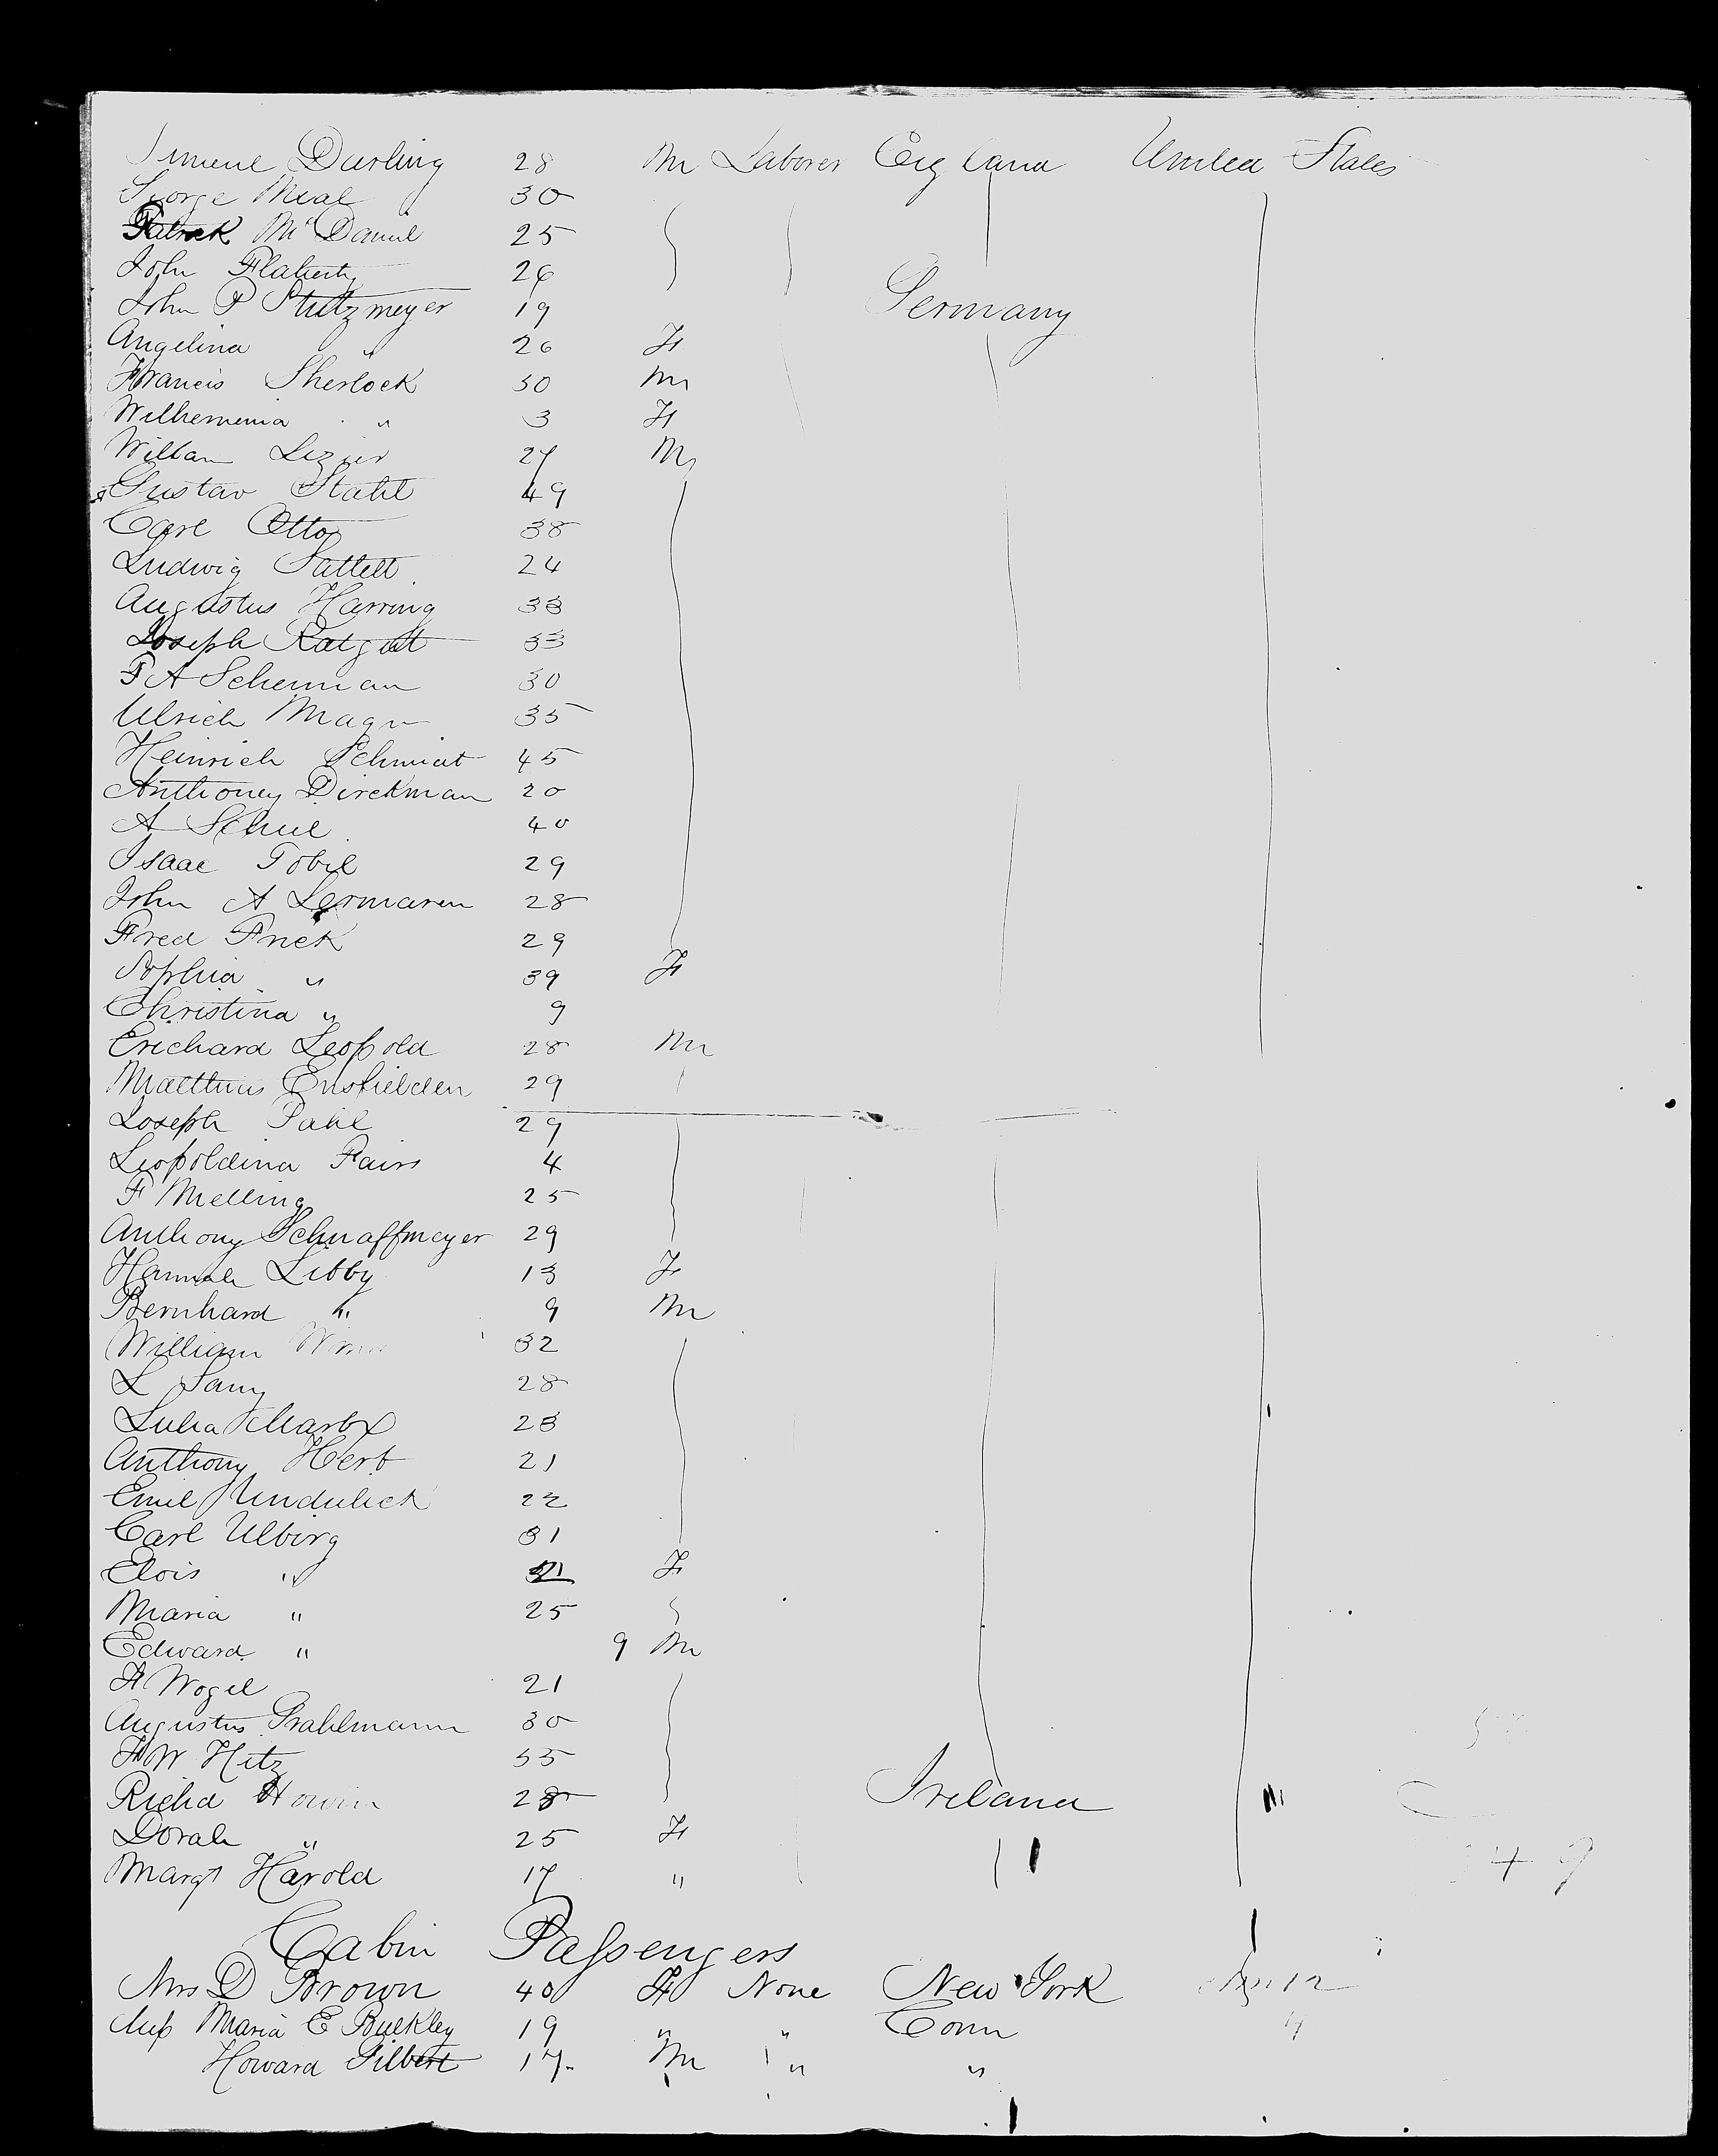 Darling 28 M Laborer England United States
George Meal 30
Patrick McDaniel 25
John Flaherty 26
John P Stutzmeyer 19 Germany
Angelina " 26 F
Francis Sherlock 30 M
Wilhemenia " 3 F
William Lezier 27 M
Gustav Stahl 49
Carl Otto 38
Ludwig Sattelt 24
Augustus Harring 33
Joseph Ratgut 33
F A Scherman 30
Ulrich Magn 35
Heinrich Schmidt 45
Anthoney Dirckman 20
A Schul 40
Isaac Tobil 29
John A Lermaren 28
Fred Frick 29
Sophia " 39 F
Christina " 9
Erichard Leopold 28 M
29
Joseph Pahl 29
Leopoldina Fairs 4
F Melling 25
Anthony Schnaffmeyer 29
Hannah Libby 13 F
Bernhard " 9 M
William 32
L Sany 28
23
Anthony Herb 21
Emil 22
Carl Ulbirg 31
Elois " F
Maria " 25
Edward " 9 M
F Wogel 21
Augustus Prahlmann 30
F W Hitz 35
Richd 28 Ireland
Dorah " 25 F
Margt Harold 17 "
Cabin Passengers
Mrs D Brown 40 F None New York
Miss Maria E Bulkley 19 " " Conn "
Howard Gilbert 17 M " "